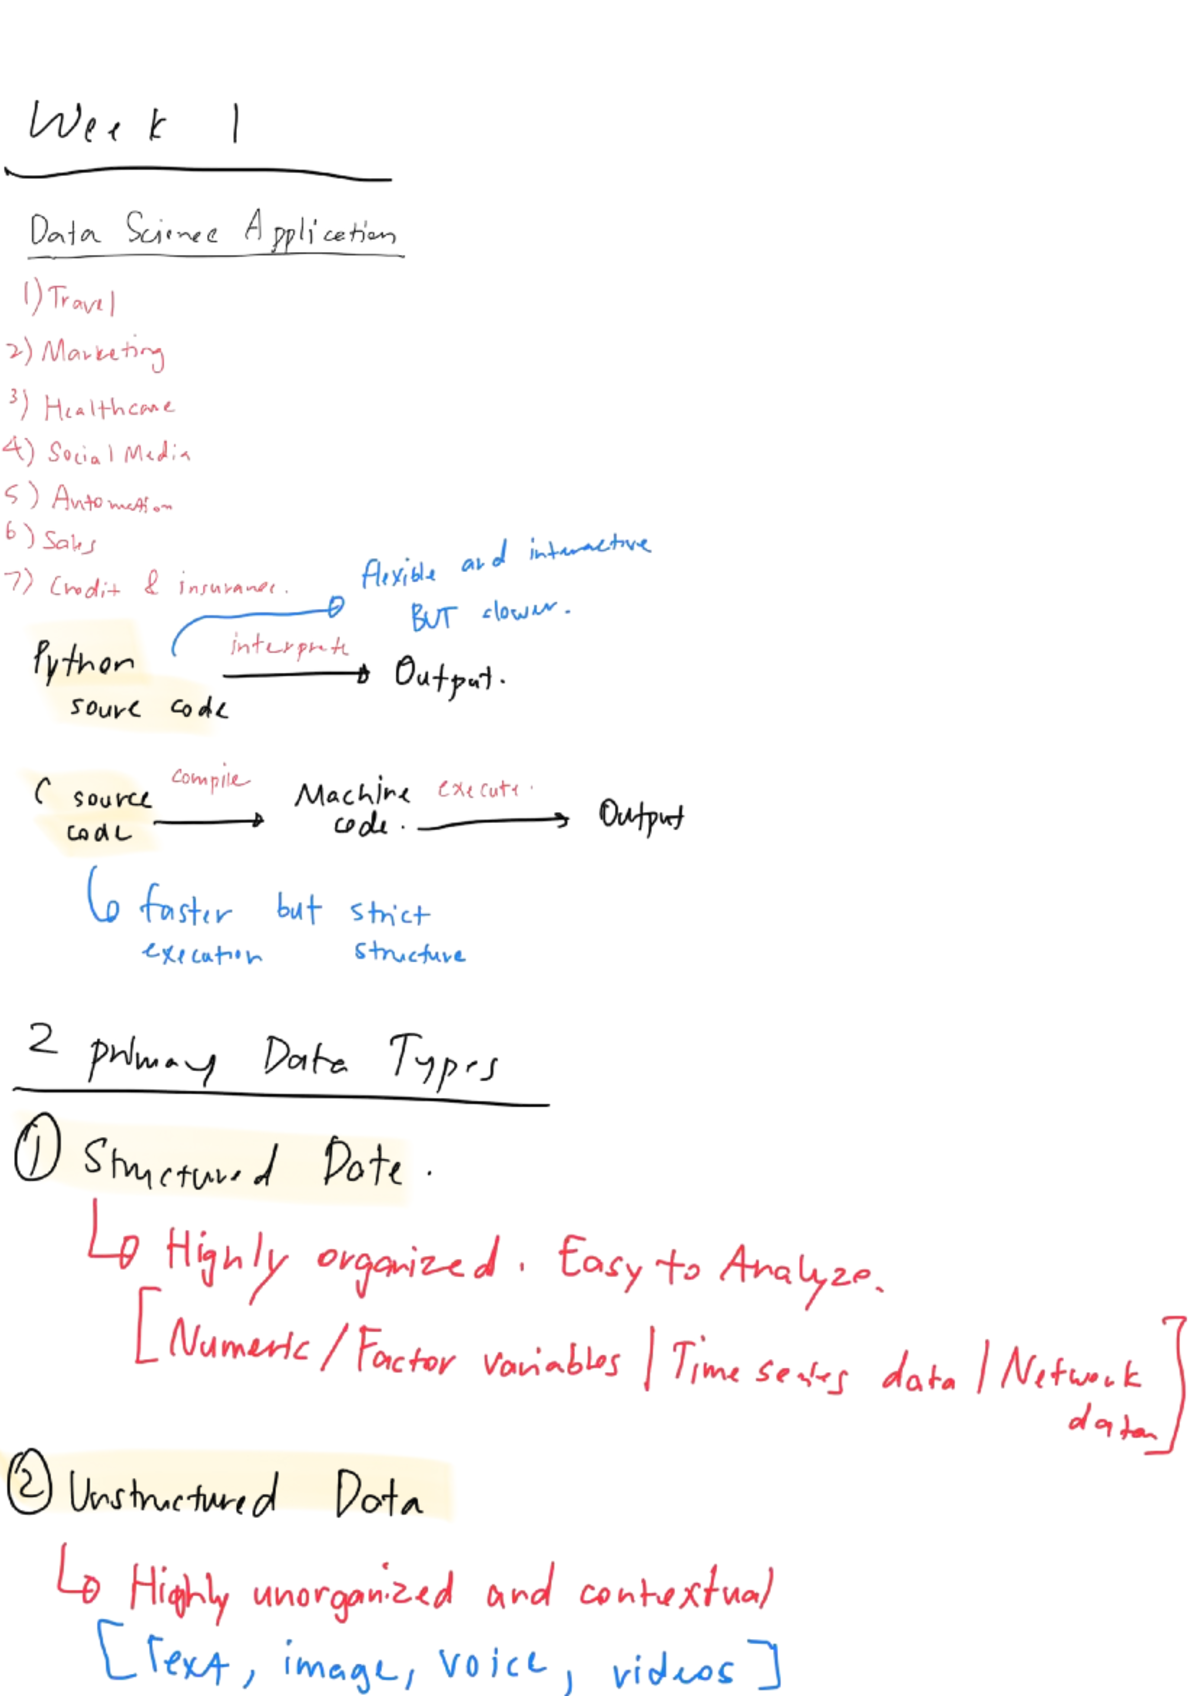 Week 1
Data Science Application
1) Travel
2) Marketing
3) Healthcare
4) Social Media
5) Automation
6) Sales
7) Credit & insurance.
flexible and interactive
BUT slower.
Python
soure code
interprete
Output.
C source
code
compile
Machine
code.
execute.
Output
faster but strict
execution structure
2 primary Data Types
① Structured Data.
Highly organized. Easy to Analyze.
[Numeric/Factor variables | Time series data | Network
data]
② Unstructured Data
Highly unorganized and contextual
[Text, image, voice, videos]